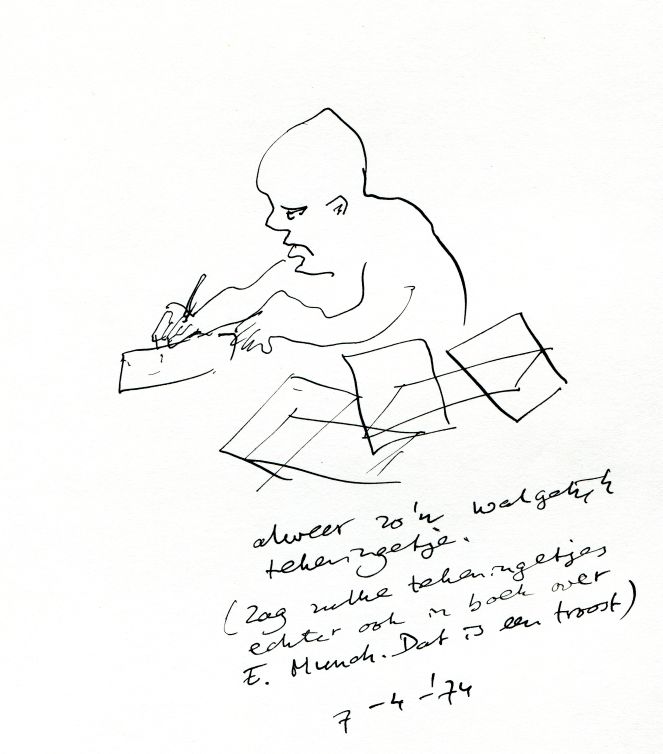 alweer zo'n walgelijk
tekeningetje.
(Zag zulke tekeningetjes
echter ook in boek over
E. Munch. Dat is een troost)
7-4-'74